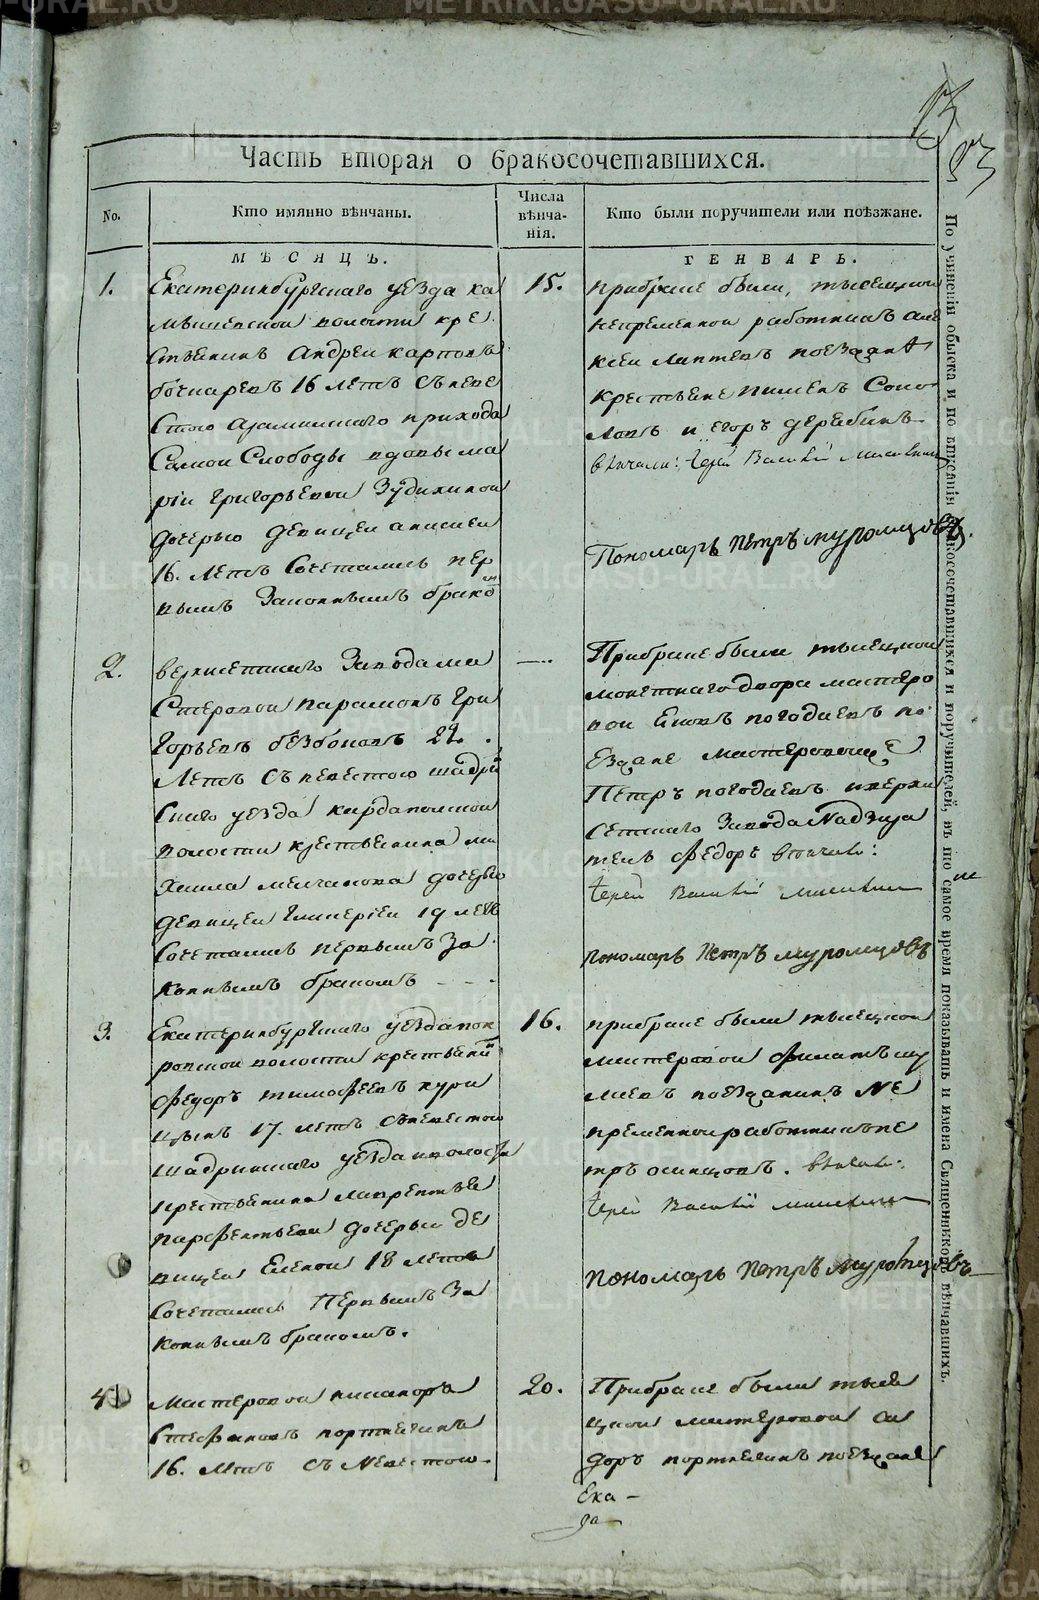 Часть вторая о бракосочетавшихся.
No.
Кто имянно вѣнчаны.
Числа вѣнча-
нія.
Кто были поручители или поѣзжане.
МѢСЯЦЪ.
ГЕНВАРЬ.
1.
Екатеринбургскаго уезда ка
мышевской волости кре
стьянинъ Андреи карповъ
бочкаревъ 16 летъ съ неве
стою Арамильскаго прихода
Самои Слободы вдовы ма
ріи григорьевои Зудихинои
дочерью девицеи анисиеи
16. летъ Сочетались пер
вымъ Законнымъ бракомъ
15.
прибраке были, тысецкои
непременнои работникъ але
ксеи лаптевъ поезжане
крестьяне пименъ Соко
ловъ и егоръ дерябинъ
вѣнчали: Іерей Василій
Пономарь петръ муромцовъ.
2.
верхисетскаго Завода ма
Стеровои парамонъ гри
горьевъ безбоновъ 22.
летъ съ невестою шадрин
Скаго уезда
волости крестьянина ми
хаила молчанова дочерью
девицеи гликеріеи 19 летъ
Сочетались первымъ За
коннымъ бракомъ - - -
Прибраке были тысецкои
монетнаго двора мастеро
вои Еиовъ погодаевъ по
езжане мастеровые
Петръ погодаевъ иверхи
сетскаго Завода Надзира
тель федоръ вѣнчали:
Іерей Василій
пономарь петръ муромцовъ
3.
Екатеринбургскаго уезда пок
ровскои волости крестьянинъ
федоръ тимофеевъ кури
цынъ 17. летъ съневестою
шадринскаго уезда волости
крестьянина лаврентья
парфентьева дочерью де
вицеи Еленои 18 летъ
Сочетались Первымъ За
коннымъ бракомъ.
16.
прибраке были тысецкои
мастеровои филатъ шу
маевъ поезжанинъ Не
пременнои работникъ пе
тръ осинцовъ. вѣнчали:
Іерей Василій
пономарь петръ муромцовъ
4.
Мастеровои никаноръ
Стефановъ портнягинъ
16. летъ съ Невестою-
20.
Прибраке были тысе
цкои мастеровои си
доръ портнягинъ поезжане
Ека -
По учиненіи обыска и по вписаніи бракосочетавшихся и поручителей, въ то самое время показывать и имена Священниковъ вѣнчавшихъ.
METRIKI.GASO-URAL.RU